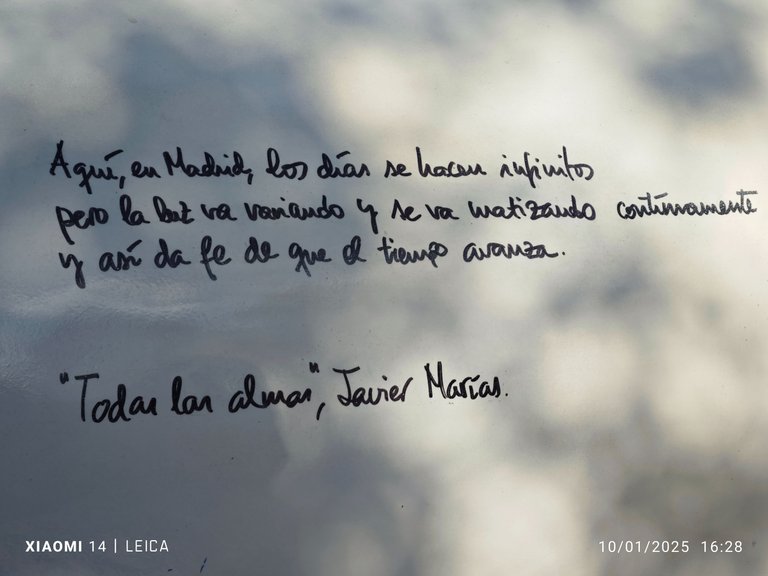 Aquí, en Madrid, los días se hacen infinitos
pero la luz va variando y se va matizando continuamente
y así da fe de que el tiempo avanza.
"Todas las almas", Javier Marías.
XIAOMI 14 | LEICA
10/01/2025 16:28